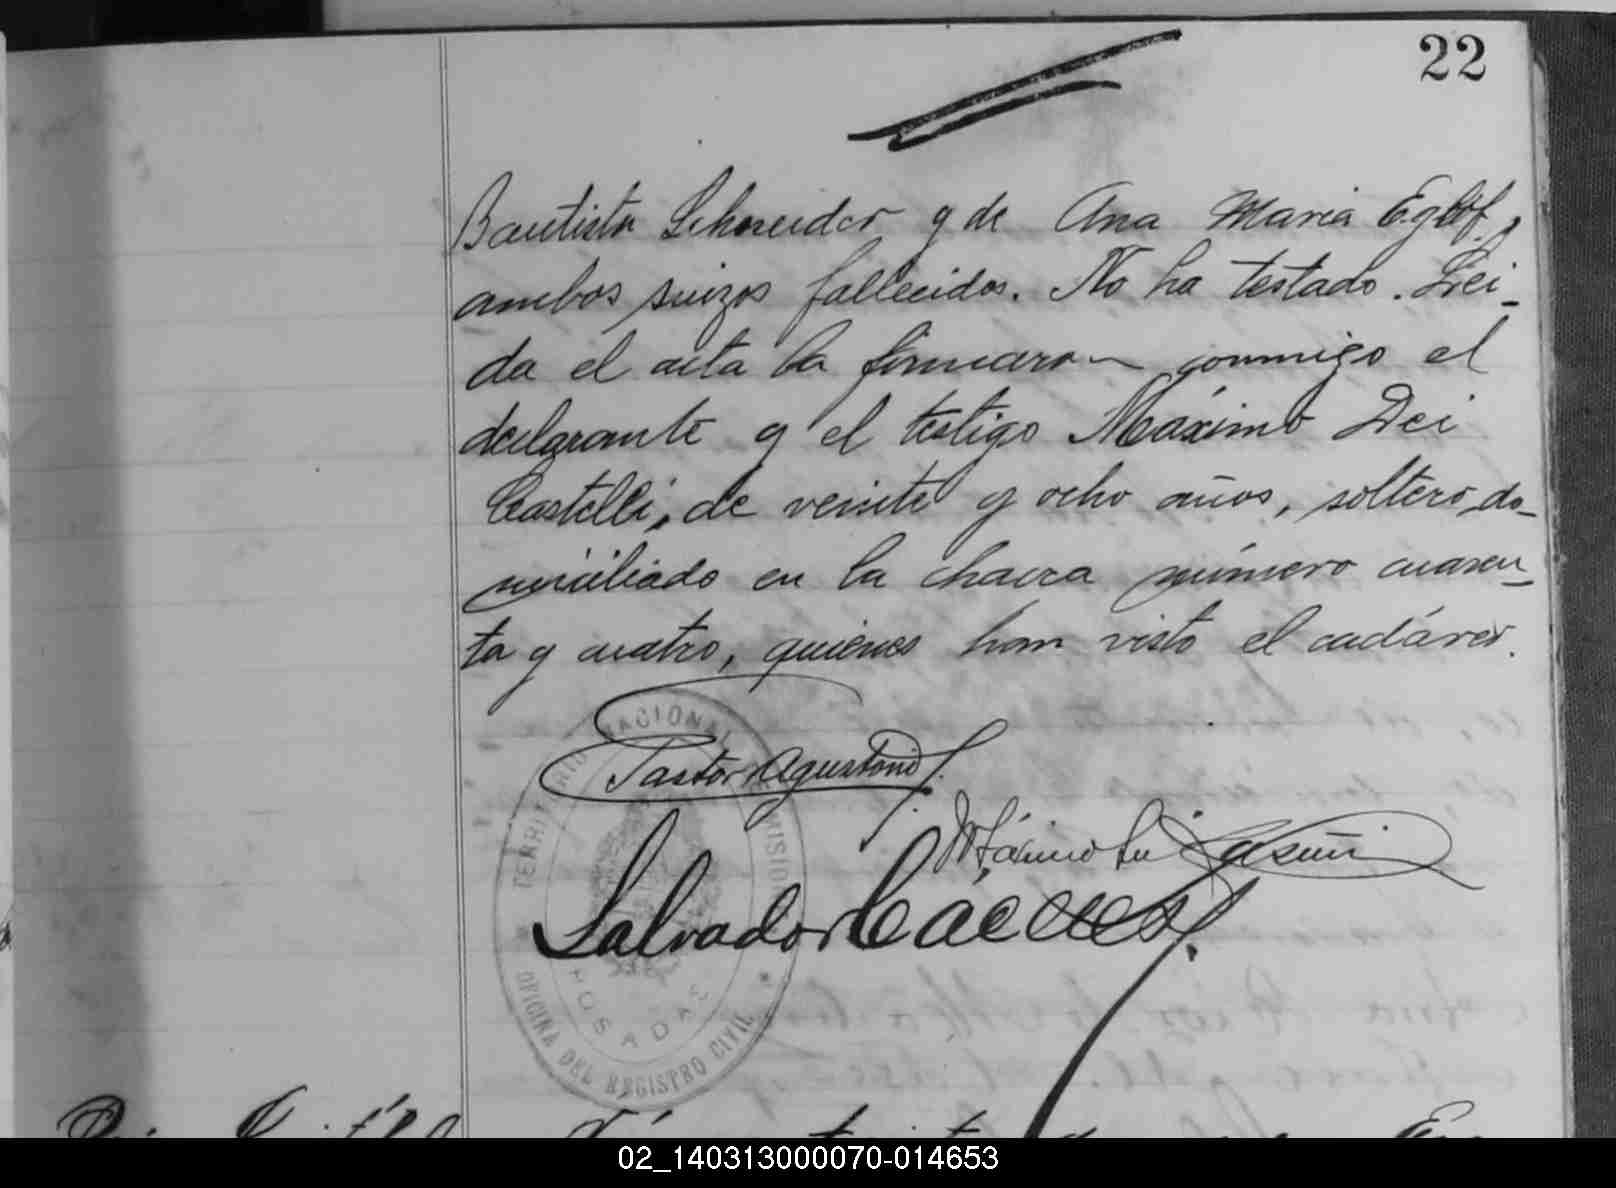 22
Bautista Schneider y de Ana Maria Eglof,
ambos suizos fallecidos. No ha testado. Lei-
da el acta la firmaron conmigo el
declarante y el testigo Máximo Dei
Castelli, de veinte y ocho años, soltero, do-
miciliado en la chacra número cuaren-
ta y cuatro, quienes han visto el cadáver.
Pastor Agustoni
Máximo
Salvador Cáceres
TERRITORIO NACIONAL DE MISIONES
POSADAS
OFICINA DEL REGISTRO CIVIL
02_140313000070-014653